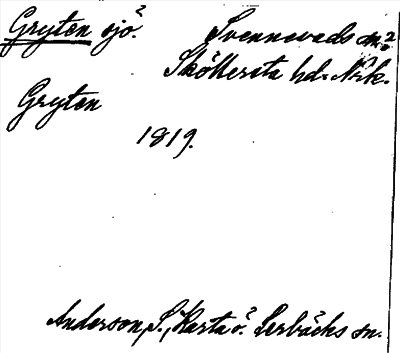 Gryten sjö².
Svennevads sn.²
Sköllersta hd. Nrk.
Gryten
1819.
Anderson, S., Karta ö. Lerbäcks sn.